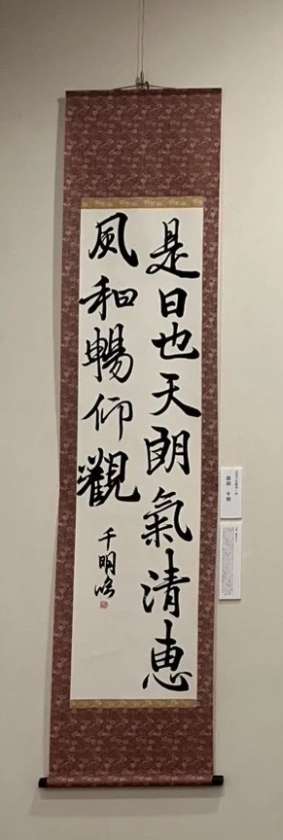 是日也天朗氣清恵
風和暢仰觀
千明